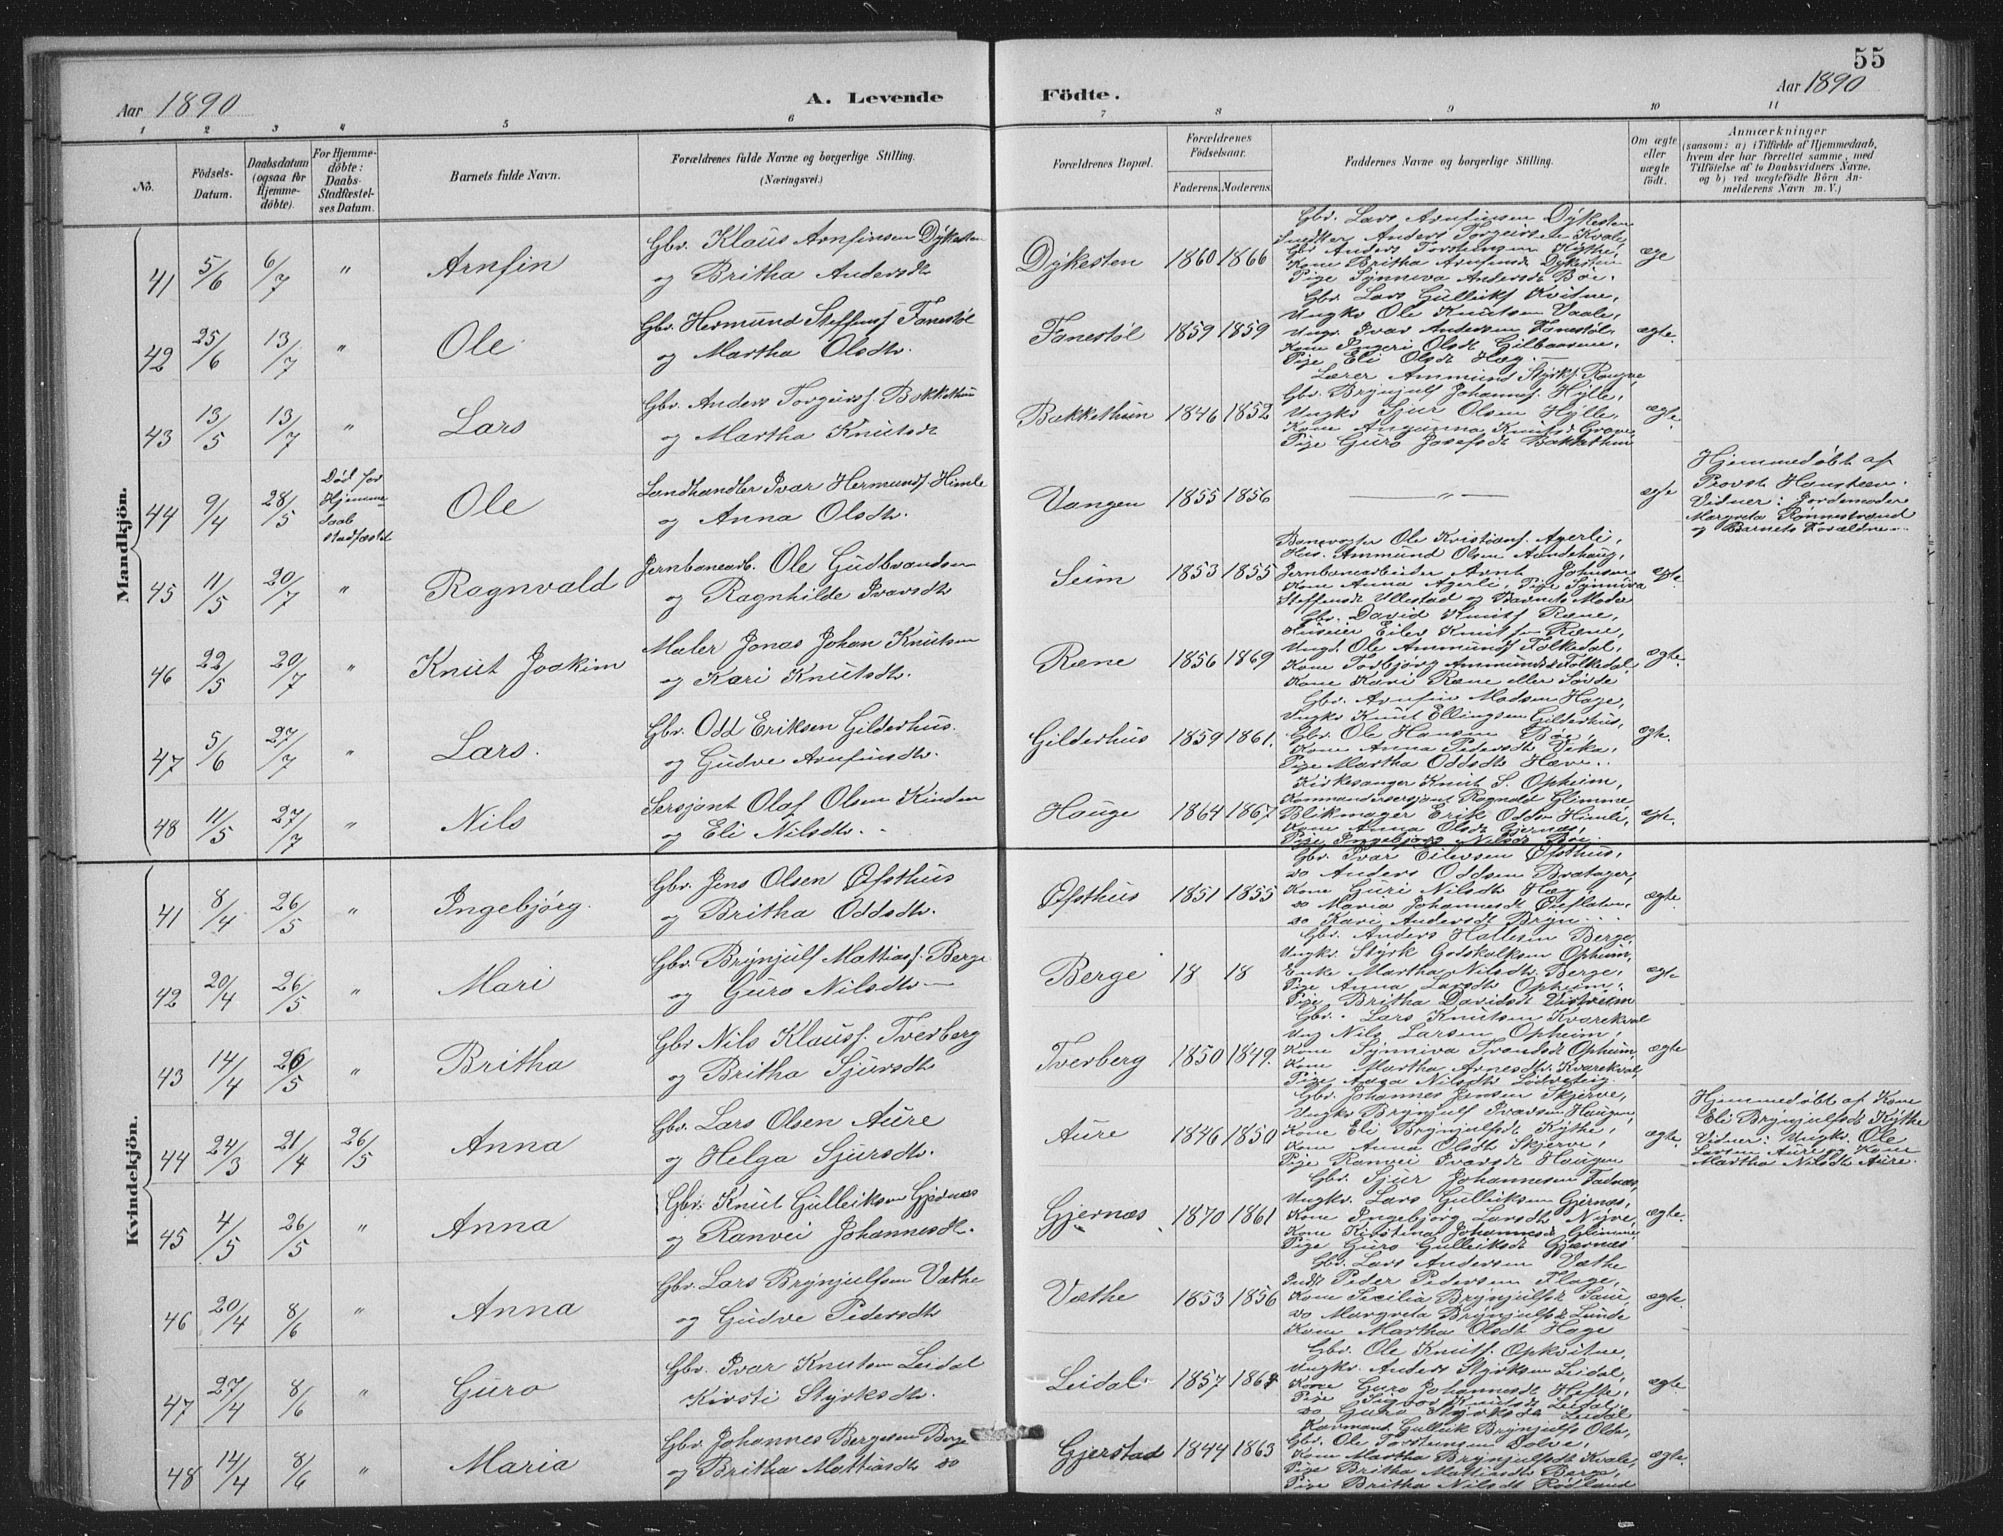 55
Aar 1890
A. Levende
Födte.
Aar 1890
1 2 3 4 5 6 7 8 9 10 11
No.
Födsels-Datum.
Daabsdatum (ogsaa for Hjemme-döbte).
For Hjemme-döbte: Daabs-Stadfæstel-ses Datum.
Barnets fulde Navn.
Forældrenes fulde Navne og borgerlige Stilling.
(Næringsvei.)
Forældrenes Bopæl.
Forældrenes Födselsaar.
Faderens. Moderens.
Faddernes Navne og borgerlige Stilling.
Om ægte eller uægte födt.
Anmærkninger
(saasom: a) i Tilfælde af Hjemmedaab,
hvem der har forrettet samme, med
Tilföielse af to Daabsvidners Navne,
og b) ved uægtefödte Börn An-
melderens Navn m. V.)
Mandkjön.
41 5/6 6/7 " Arnfin
Gbr. Klaus Arnfinsen Dykesten
og Britha Andersdt
Dykesten 1860 1866
Gbr. Lars Arnfinsen Dykesten
Anders Torgeirsen Kvale,
Gbr Anders Torsteinsen Kythe,
Kone Britha Arnfinsd. Dykesten
Pige Synneva Andersdt Böe.
42 25/6 13/7 " Ole
Gbr. Hermund Steffensf Fanestöl
og Martha Olsdtr.
Fanestöl 1859 1859
Gbr. Lars Gulleiksf Kvitne,
Ungkr Ole Knutsen Vaale,
Ungr. Ivar Andersen Fanestöl,
Kone Ingeri Olsdt
Pige Eli Olsdt Hæg.
ægte.
43 13/5 13/7 " Lars
Gbr. Anders Torgeirsf Bakkethun
og Martha Knutsdt
Bakkethun 1846 1852
Lærer Ammund Styrksf. Rongve,
Gbr. Brynjulf Johannesf. Hylle,
Ungkr Sjur Olsen Hylle,
Kone Knutsd Grove,
Pige Guro Josefsdt Bakkethun
ægte
44 9/4 28/5
Ole
Landhandler Ivar Hermundsf. Himle
og Anna Olsdtr.
Vangen 1855 1856 — " —
ægte
Hjemmedøbt af
Provst Hansteen.
Vidner: Jordemoder
Margreta Rønnestrand
og Barnets Forældre
45 11/5 20/7 " Ragnvald
Jernbanearb. Ole Gudbrandsen
og Ragnhilde Ivarsdtr
Seim 1853 1855
Banevogter Ole Kristiansf. Agerli,
Hus. Ammund Olsen
Jernbanearbeider Arnt Johnsen
Kone Anna Agerli, Pige Synneva
Steffensdt Ullestad og Barnets Moder
ægte.
46 22/5 20/7 " Knut Joakim
Maler Jonas Johan Knutsen
og Kari Knutsdtr.
Ræne 1856 1869
Gbr. David Knutsf Ræne,
Eilev Knutsen Ræne,
Ungk. Ole Ammundsf Folkedal,
Kone Torbjörg Ammundsd Folkedal,
Kone Kari Ræne
ægte.
47 5/6 27/7 " Lars.
Gbr. Odd Eriksen Gilderhus.
og Gudve Arnfinsdtr.
Gilderhus 1859 1861.
Gbr. Arnfin Madsen Hage,
Ungkr Knut Ellingsen Gilderhus,
Gbr. Ole Hansen Böe,
Kone Anna Pedersdt Veka,
Pige Martha Oddsdt Hæve.
ægte.
48 11/5 27/7 " Nils
Sersjant Olaf Olsen Kinden
og Eli Nilsdtr.
Hauge 1864 1867
Kirkesanger Knut S. Opheim,
Kommandersersjant Ragnald Glimme
Blikmager Erik Oddsen Himle,
Kone Anna Olsdt Gjernæs,
Pige Ingebjörg Nilsdt Böe
Kvindekjön.
41 8/4 26/5 " Ingebjörg.
Gbr. Jens Olsen Øfsthus
og Britha Oddsdtr.
Øfsthus 1851 1855
Gbr. Ivar Eilevsen Øfsthus,
do Anders Oddsen Bratager,
Kone Guri Nilsdtr Hæg,
do Maria Johannesdt
do Kari Andersdt Bryn
ægte.
42 20/4 26/5 " Mari
Gbr. Brynjulf Mattiasf. Berge
og Guro Nilsdtr.
Berge 18 18
Gbr. Anders Hallesen Berge,
Ungkr. Styrk Godskalksen Opheim,
Enke Martha Nilsdtr. Berge,
Pige Anna Larsdt Opheim,
Pige Britha Davidsdt
ægte
43 14/4 26/5 " Britha
Gbr Nils Klausf. Tverberg
og Britha Sjursdtr
Tverberg 1850 1849.
Gbr. Lars Knutsen Kvarekval
Ung Nils Larsen Opheim,
Kone Synniva Trondsdt Opheim,
Kone Martha Arnesdtr. Kvarekval,
Pige Aaga Nilsdtr
ægte
44 24/3 21/4 26/5 Anna
Gbr. Lars Olsen Aure
og Helga Sjursdtr.
Aure 1846 1850
Gbr. Johannes Jensen Skjerve,
Ungkr Brynjulf Ivarsen Haugen,
Kone Eli Brynjulfsdt Kythe,
Kone Anna Olsdt Skjerve,
Pige Ranvei Ivarsdt Haugen
ægte.
Hjemmedøbt af Kone
Eli Brynjulfsdt Kythe
Vidner: Ungkr. Ole
Larsen Aure og Kone
Martha Nilsdt Aure.
45 4/5 26/5 " Anna
Gbr. Knut Gulleiksen Gjernæs
og Ranvei Johannesdt.
Gjernæs 1870 1861
Gbr. Sjur Johannesen
Ungkr. Lars Gulleiksen Gjernæs,
Kone Ingebjörg Larsdtr
Kone Kirstina Johannesdt Glimme
Pige Guro Gulleiksdt Gjernæs
ægte.
46 20/4 8/6 " Anna
Gbr. Lars Brynjulfsen Væthe
og Gudve Pedersdtr
Væthe 1853 1856
Gbr. Lars Andersen Væthe
Peder Pedersen Flage,
Kone Secilia Brynjulfsdt
do Margreta Brynjulfsdt Lunde
Kone Martha Olsdt Hage
ægte.
47 27/4 8/6 " Guro
Gbr. Ivar Knutsen Leidal
Kirsti Styrksdtr.
Leidal 1857
Gbr. Ole Knutsf. Opkvitne,
Ungkr. Anders Styrksen Leidal,
Kone Guro Johannesdt
Pige Knutsdt Leidal,
do Guro Styrksdt Leidal
ægte
48 14/4 8/6 " Maria
Gbr. Johannes Bergesen Berge
og Britha Mattiasdtr do
Gjerstad 1844 1863
Gulleik Brynjulfs
Gbr. Ole Torsteinsen Dolve,
Kone Martha Brynjulfsdt Kvale,
Pige Britha Mattiasdt Berge,
Pige Britha Nilsdt Rödland
ægte.